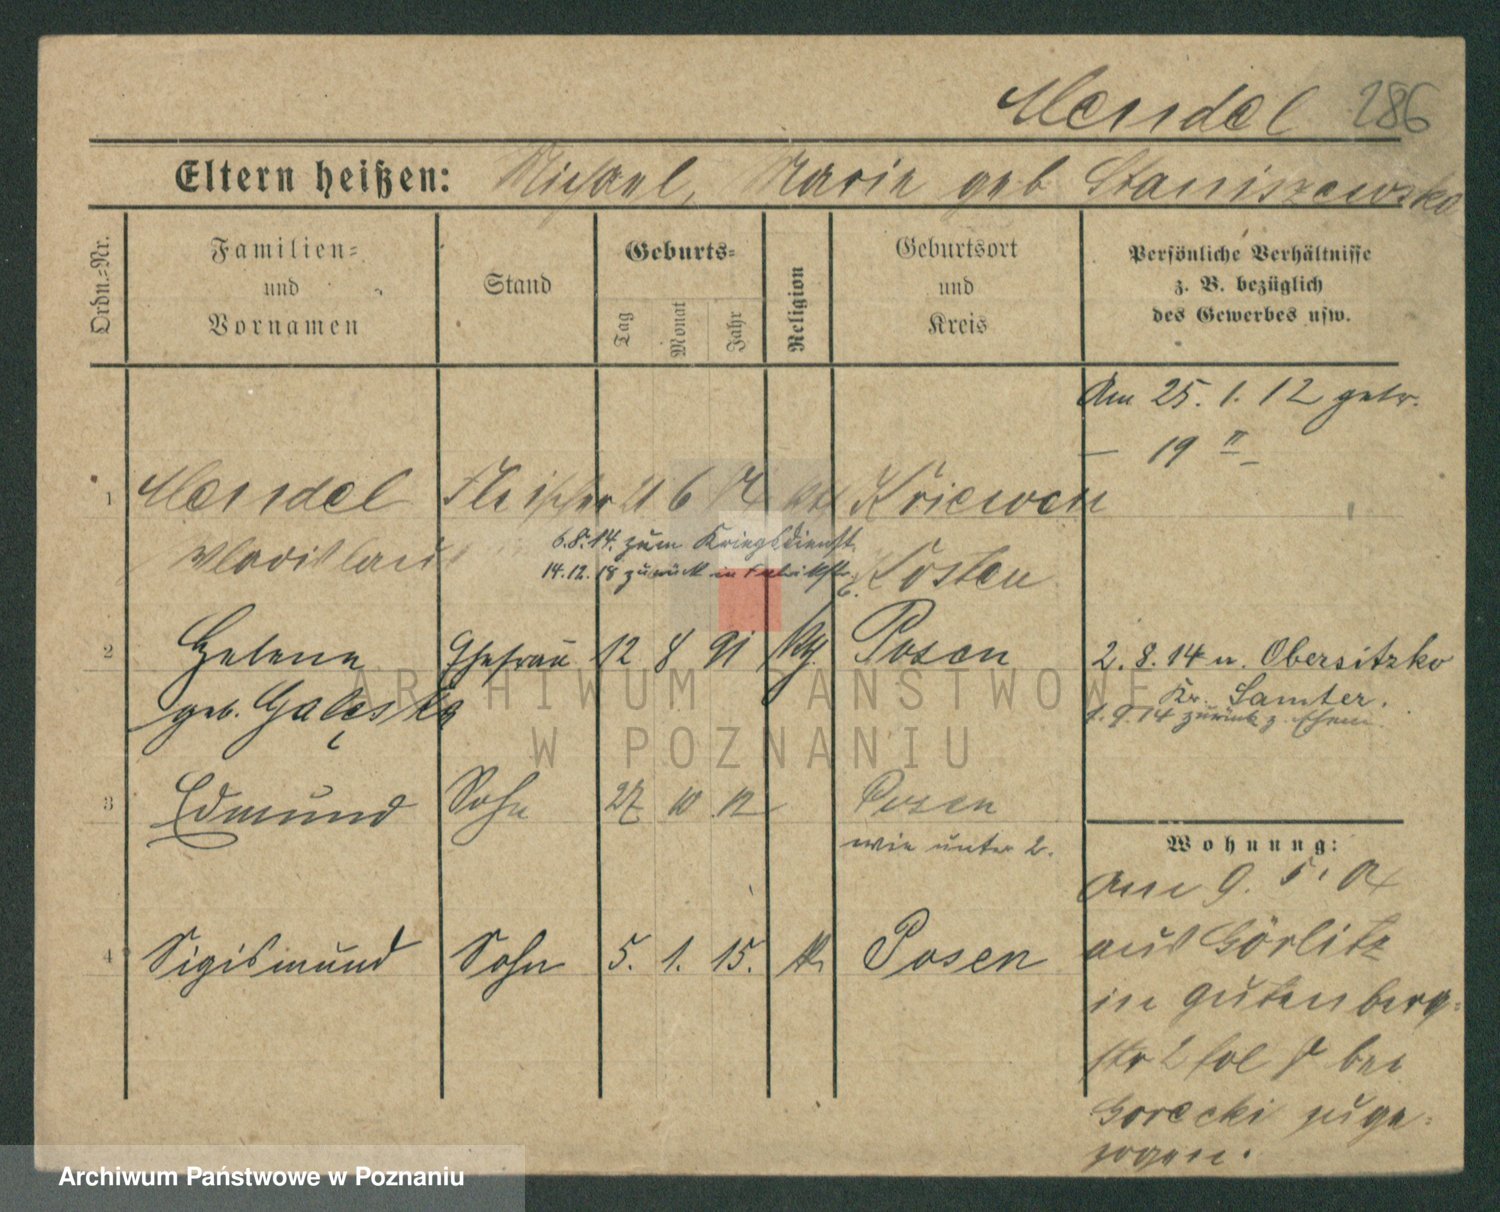 Mendel 286
Eltern heißen: Michael, Marie geb Staniszewska
Ordn.-Nr.
Familien-
und
Vornamen
Stand
Geburts-
Tag
Monat
Jahr
Religion
Geburtsort
und
Kreis
Persönliche Verhältnisse
z. B. bezüglich
des Gewerbes usw.
Am 25. 1. 12 getr.
— 19 II —
1 Mendel Fleischer 6 Kriewen
Wladislaus Kosten
6.8.14. zum Kriegsdienst
14.12.18 zurück in
2 Helene Ehefrau 12 8 91 Posen
geb. Gałęska
2. 8. 14 n. Obersitzko
Kr. Samter.
1. 9. 14 zurück z. Ehem.
3 Edmund Sohn 27 10 12 Posen
wie unter 2.
4 Sigismund Sohn 5. 1. 15. k Posen
Wohnung:
Am 9. 5. 04
aus Görlitz
in Gutenberg-
str 2 bei
Gorecki zuge-
zogen.
ARCHIWUM PAŃSTWOWE
W POZNANIU
Archiwum Państwowe w Poznaniu